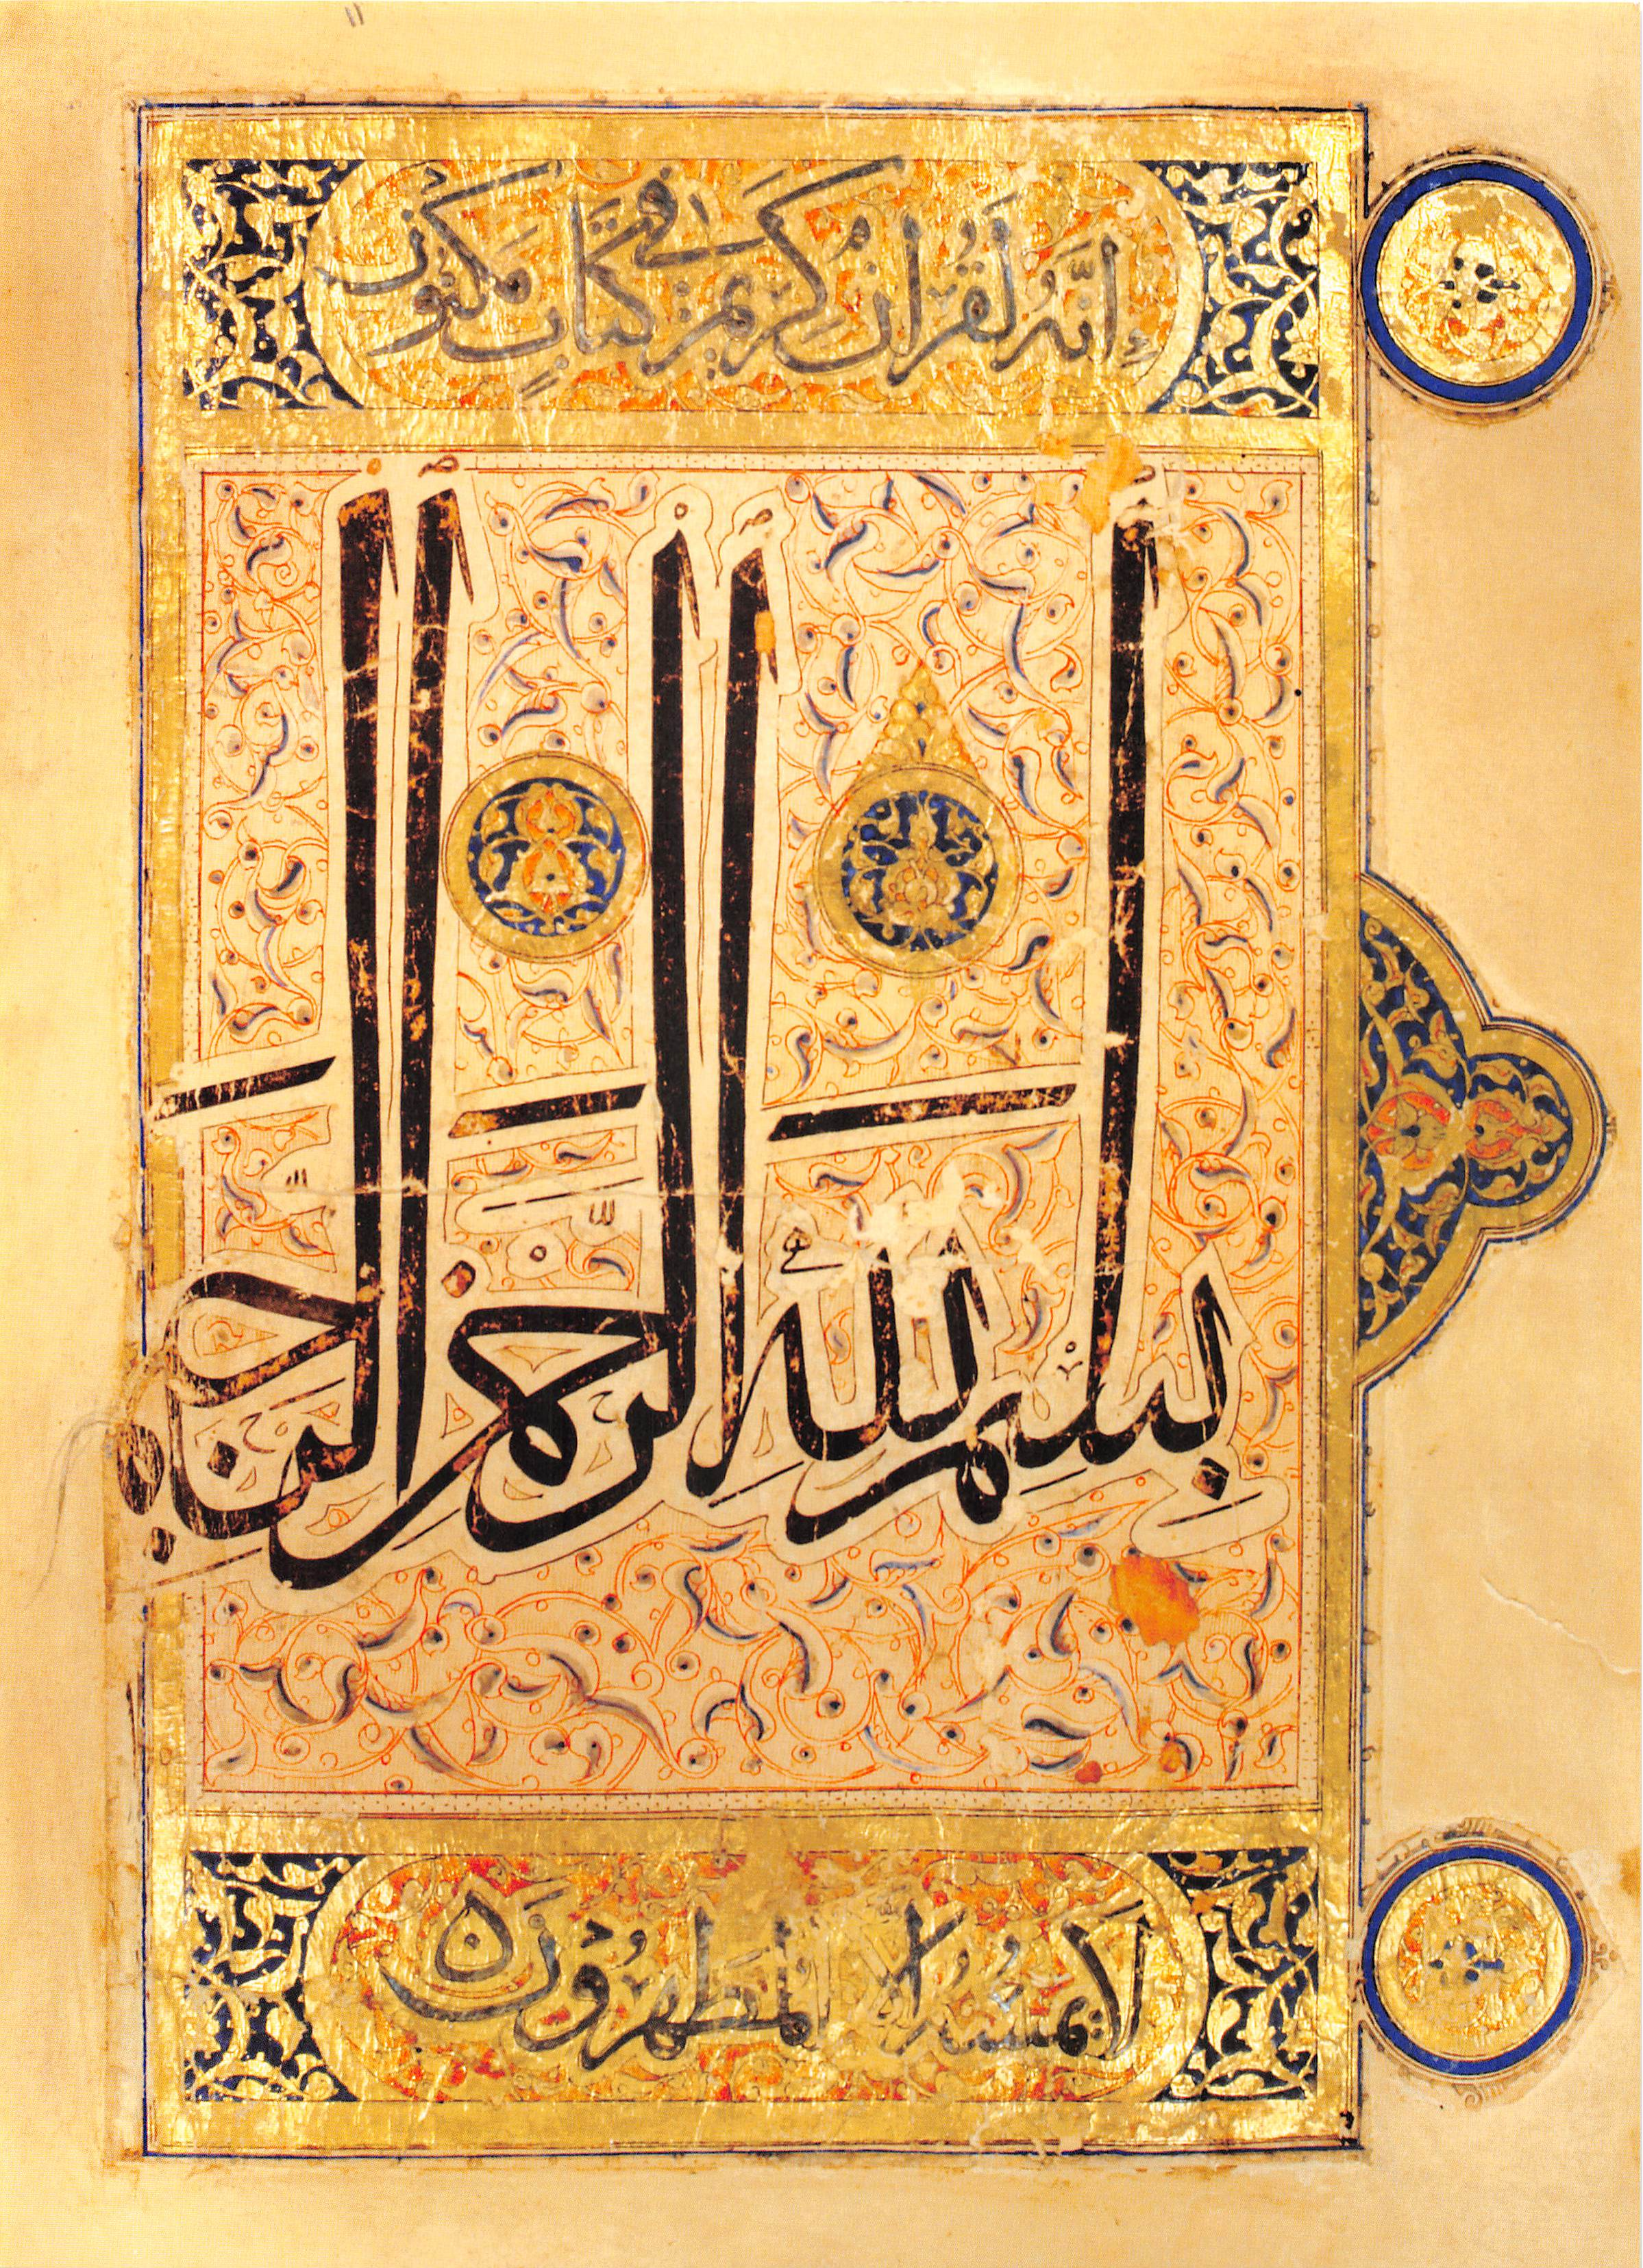 إِنَّهُ لَقُرْآنٌ كَرِيمٌ فِي كِتَابٍ مَكْنُونٍ
بِسْمِ اللَّهِ الرَّحْمَنِ الرَّحِيمِ
لَا يَمَسُّهُ إِلَّا الْمُطَهَّرُونَ